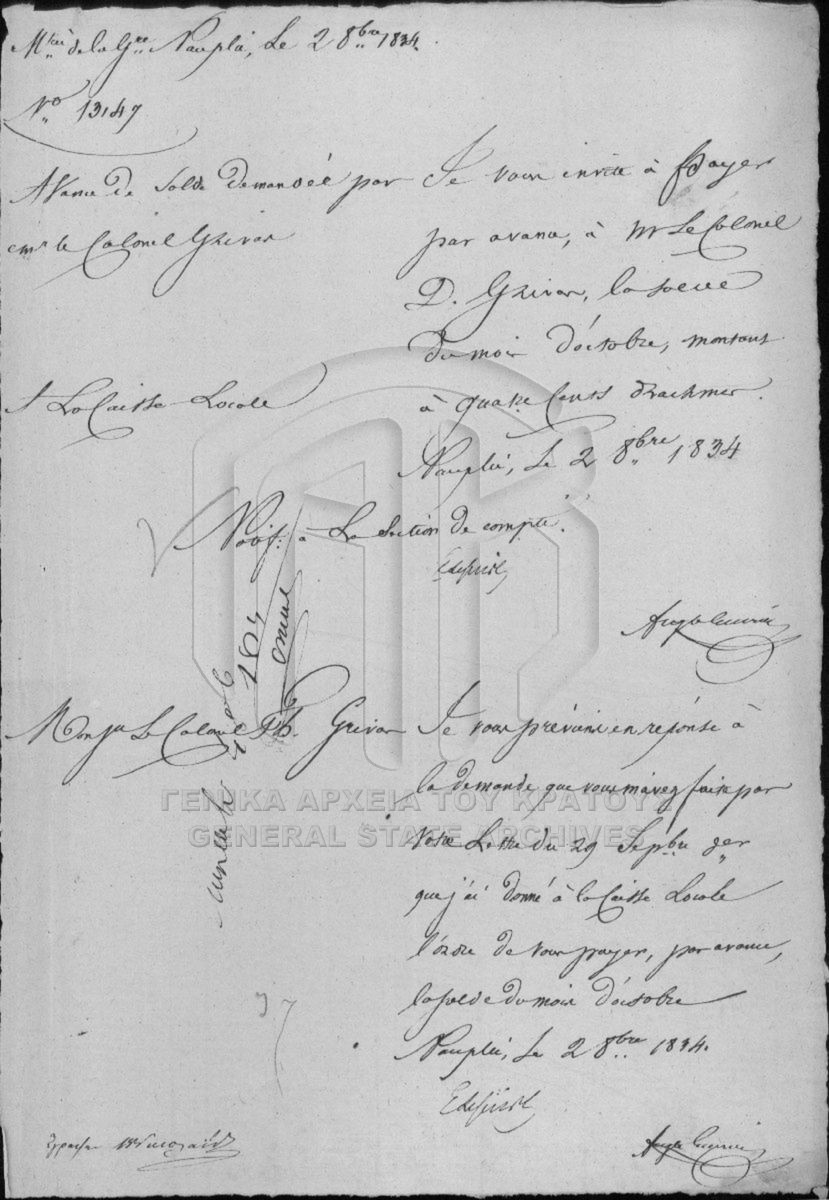 M.^tère de la G^re Nauplie, Le 2 8^bre 1834.
N^o 13147
Avance de Solde demandée par
le Colonel Grivas
A La Caisse Locale
Je vous invite à payer
par avance, à Mr Le Colonel
D. Grivas, la solde
du mois d'octobre, montant
à quatre Cents drachmes.
Nauplie, Le 2 8^bre 1834
Notif: à La Section de compté.
Monsr Le Colonel Th. Grivas
Je vous préviens en réponse à
la demande que vous m'avez faite par
Votre Lettre du 29 Sepbre der
que j'ai donné à la Caisse Locale
l'ordre de vous payer, par avance,
la solde du mois d'octobre
Nauplie, Le 2 8^bre 1834.
ΓΕΝΙΚΑ ΑΡΧΕΙΑ ΤΟΥ ΚΡΑΤΟΥΣ
GENERAL STATE ARCHIVES